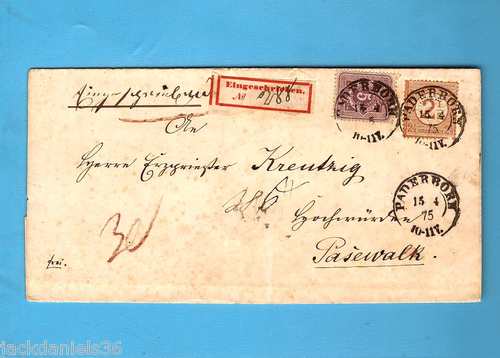 Eingeschrieben
Eingeschrieben.
№ 288
PADERBORN
15 4
75
10-11V.
PADERBORN
15 4
75
10-11V.
An
Herrn Erzpriester Kreutzig
PADERBORN
15 4
75
10-11V.
Hochwürden
Pasewalk.
frei.
jackdaniels36